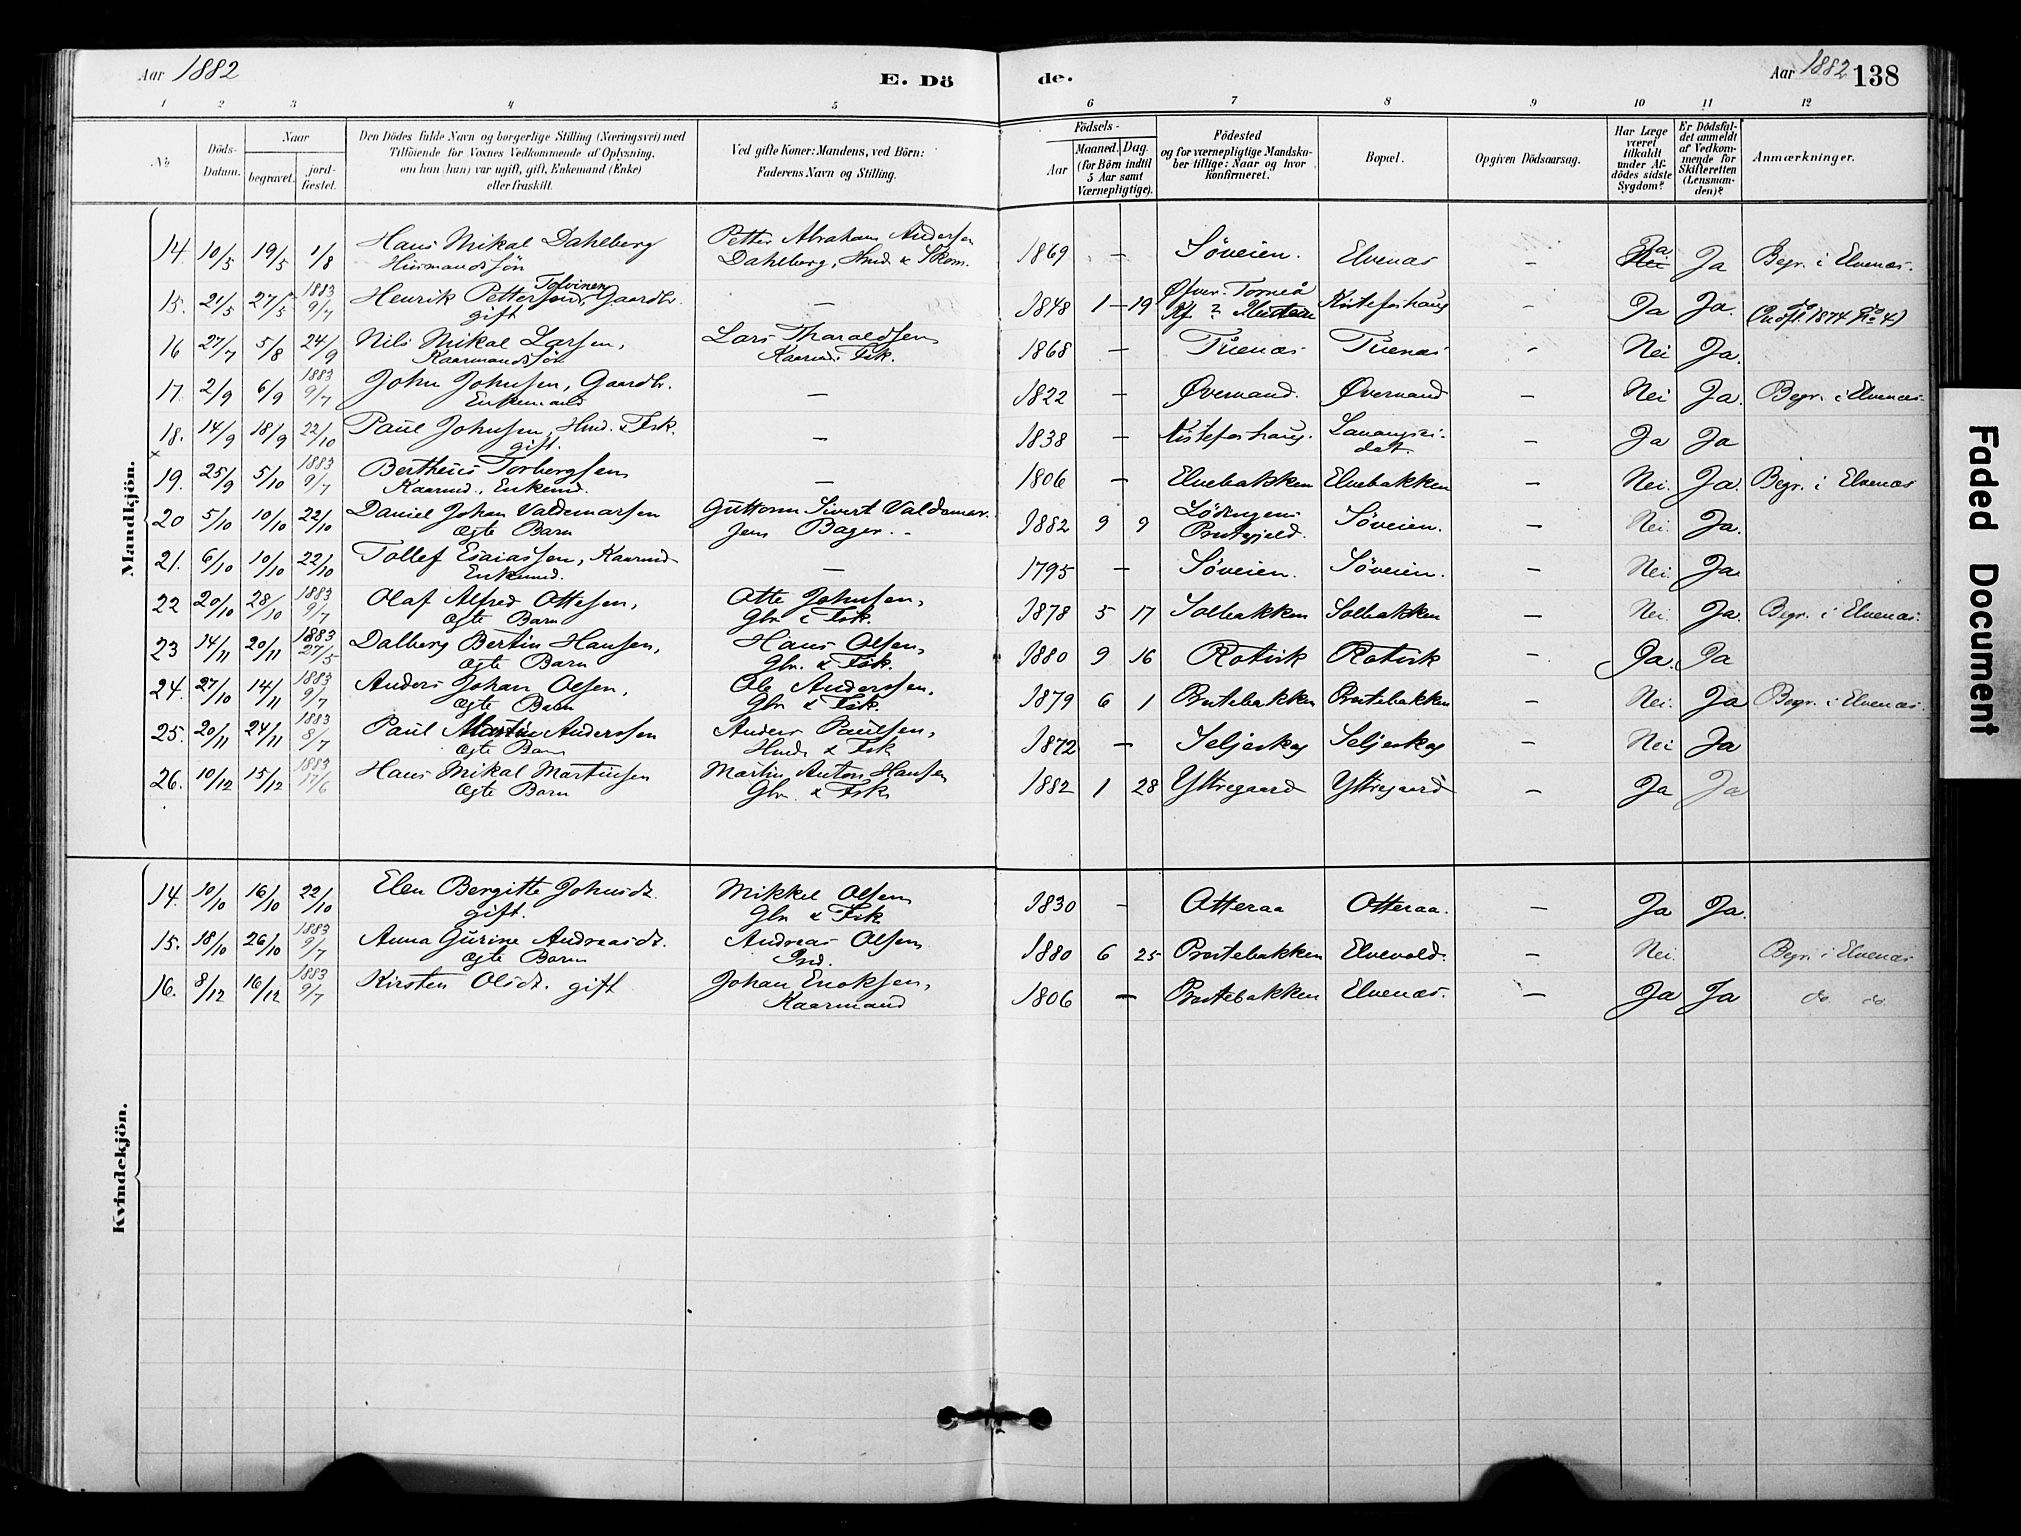 Aar 1882
E. Dö
de.
Aar 1882
138
1 2 3 4 5 6 7 8 9 10 11 12
No
Döds-
Datum.
Naar
begravet.
jord-
fæstet.
Den Dödes fulde Navn og borgerlige Stilling (Næringsvei) med
Tilföiende for Voxnes Vedkommende af Oplysning,
om han (hun) var ugift, gift, Enkemand (Enke)
eller fraskilt.
Ved gifte Koner: Mandens, ved Börn:
Faderens Navn og Stilling.
Födsels-
Aar
Maaned.
Dag.
(for Börn indtil
5 Aar samt
Værnepligtige).
Födested
og for værnepligtige Mandska-
ber tillige: Naar og hvor
Konfirmeret.
Bopæl.
Opgiven Dödsaarsag.
Har Læge
været
tilkaldt
under Af-
dödes sidste
Sygdom?
Er Dödsfal-
det anmeldt
af Vedkom-
mende for
Skifteretten
(Lensman-
den)?
Anmærkninger.
Mandkjön.
14. 10/5 19/5 1/8 Hans Mikal Dahlberg Petter Abraham Andersen 1869 — Søveien. Elvenæs – Ja Ja Begr. i Elvenæs.
Huusmandssøn Dahlberg, Hmd. & Skom.
15. 21/5 27/5 1883 9/7 Henrik Pettersen Tolvinen, Gaardbr. — 1848 1 — 19 Øfver-Torneå Kistefoshaug – Ja Ja.
gift
16 27/7 5/8 24/9 Nils Mikal Larsen, Lars Tharaldsen 1868 — Tuenæs Tuenæs – Nei Ja.
Kaarmandssøn Kaarmd. Fsk.
17. 2/9 6/9 1883 9/7 John Johnsen, Gaardbr. — 1822 — Øvervand. Øvervand – Nei Ja. Begr. i Elvenæs.
Enkemand
18. 14/9 18/9 22/10 Paul Johnsen, Hmd. & Fsk. — 1838 — Kistefoshaug. Lavangsei-
gift. det. – Ja Ja
19. 25/9 5/10 1883 9/7 Bertheus Torbergsen — 1806 — Elvebakken Elvebakken – Nei. Ja. Begr. i Elvenæs
Kaarmd., Enkemd.
20 5/10 10/10 22/10 Daniel Johan Valdemarsen Guttorm Sivert Valdemar- 1882 9 9 Lødingens Søveien. – Nei. Ja.
Ægte Barn sen Bager. Præstegjeld.
21. 6/10 10/10 22/10 Tollef Esaiassen, Kaarmd. — 1795 — Søveien. Søveien. – Nei. Ja.
Enkemd.
22 20/10 28/10 1883 9/7 Olaf Alfred Ottesen, Otte Johnsen, 1878 5 17 Solbakken Solbakken – Nei. Ja. Begr. i Elvenæs.
Ægte Barn Gbr. & Fsk.
23 14/11 20/11 1883 27/5 Dalberg Bertin Hansen, Hans Olsen, 1880 9 16 Rotvik Rotvik – Ja. Ja
Ægte Barn Gbr. & Fsk.
24. 27/10 14/11 1883 9/7 Anders Johan Olsen, Ole Anderssen, 1879 6 1 Præstebakken Præstebakken – Nei. Ja Begr. i Elvenæs.
Ægte Barn Gbr & Fsk.
25. 20/11 24/11 1883 8/7 Paul Martin Anderssen Anders Paulsen, 1872 — Seljeskog Seljeskog – Nei Ja
Ægte Barn Hmd. & Fsk
26. 10/12 15/12 1883 17/6 Hans Mikal Martinsen Martin Anton Hansen 1882 1 28 Yttregaard Yttregaard – Ja Ja
Ægte Barn Gbr. & Fsk
Kvindekjön.
14. 10/10 16/10 22/10 Elen Bergitte Johnsdt. Mikkel Olsen 1830 – Otteraa Otteraa. – Ja Ja.
gift. Gbr & Fsk
15. 18/10 26/10 1883 9/7 Anna Gurine Andreasdt. Andreas Olsen 1880 6 25 Præstebakken Elvevold. – Nei. Begr. i Elvenæs
Ægte Barn
16. 8/12 16/12 1883 9/7 Kirsten Olsdt. gift Johan Enoksen, 1806 — Præstebakken Elvenæs. – Ja Ja do do
Kaarmand
Faded Document